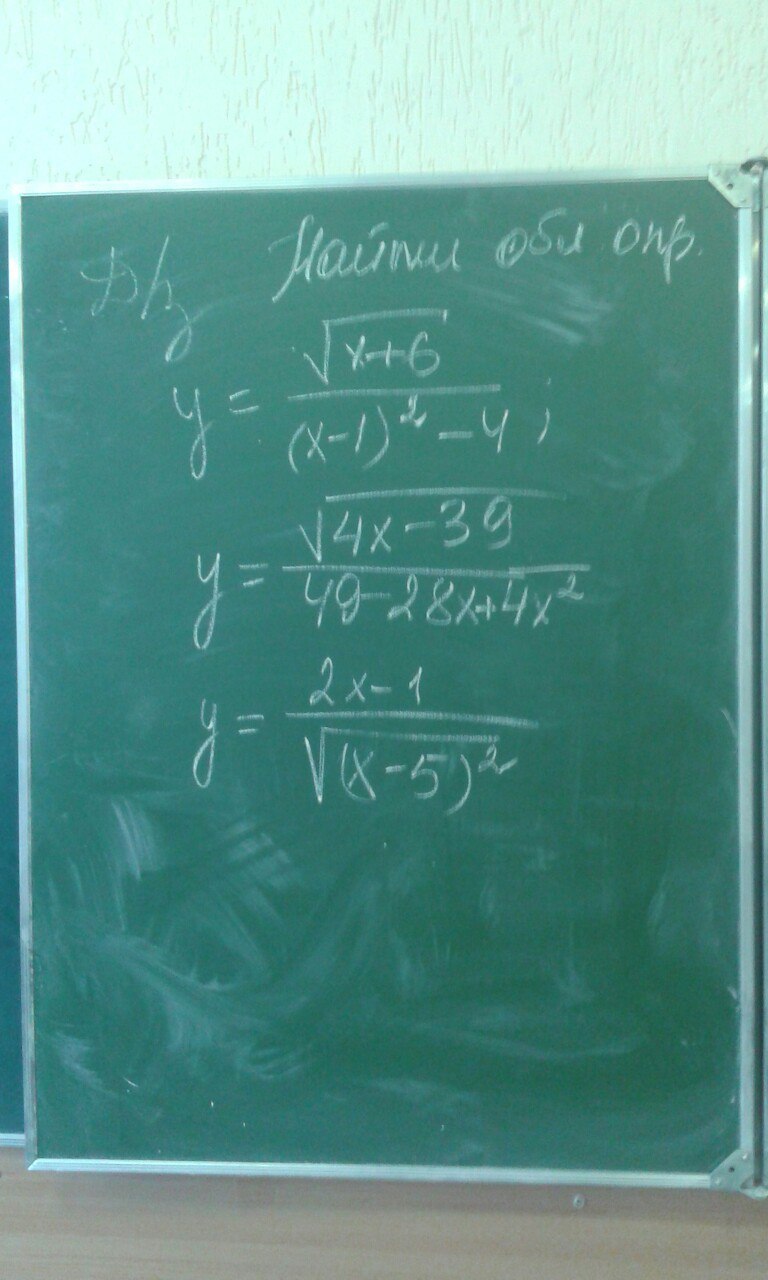 Д/з Найти обл опр.
y = √(x+6) / ((x-1)² - 4) ;
y = √(4x-39) / (49-28x+4x²)
y = (2x-1) / √((x-5)²)